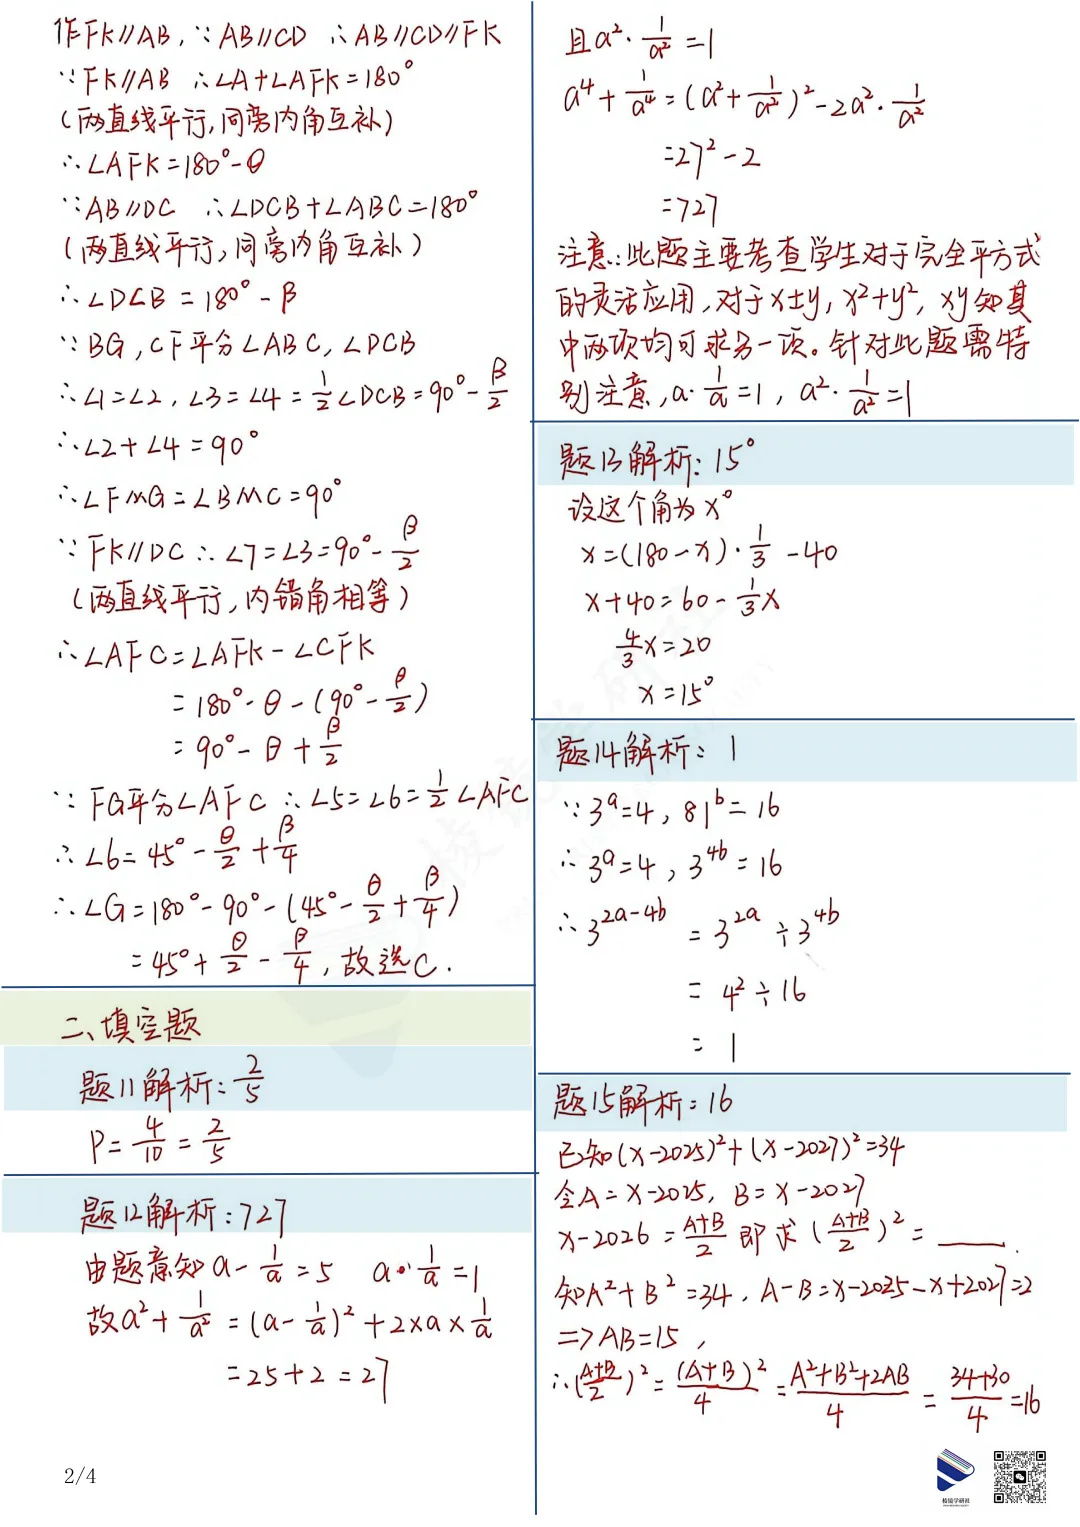 作FK//AB,∵AB//CD ∴AB//CD//FK
∵FK//AB ∴∠A+∠AFK=180°
(两直线平行,同旁内角互补)
∴∠AFK=180°-θ
∵AB//DC ∴∠DCB+∠ABC=180°
(两直线平行,同旁内角互补)
∴∠DCB=180°-β
∵BG,CF平分∠ABC,∠DCB
∴∠1=∠2,∠3=∠4=1/2∠DCB=90°-β/2
∴∠2+∠4=90°
∴∠FMG=∠BMC=90°
∵FK//DC∴∠7=∠3=90°-β/2
(两直线平行,内错角相等)
∴∠AFC=∠AFK-∠CFK
=180°-θ-(90°-β/2)
=90°-θ+β/2
∵FG平分∠AFC ∴∠5=∠6=1/2∠AFC
∴∠6=45°-θ/2+β/4
∴∠G=180°-90°-(45°-θ/2+β/4)
=45°+θ/2-β/4,故选C.
二、填空题
题11解析:2/5
P=4/10=2/5
题12解析:727
由题意知a-1/a=5 a·1/a=1
故a²+1/a²=(a-1/a)²+2×a×1/a
=25+2=27
且a²·1/a²=1
a⁴+1/a⁴=(a²+1/a²)²-2a²·1/a²
=27²-2
=727
注意:此题主要考查学生对于完全平方式
的灵活应用,对于x±y,x²+y²,xy知其
中两项均可求另一项。针对此题需特
别注意,a·1/a=1,a²·1/a²=1
题13解析:15°
设这个角为x°
x=(180-x)·1/3-40
x+40=60-1/3x
4/3x=20
x=15°
题14解析:1
∵3ᵃ=4,81ᵇ=16
∴3ᵃ=4,3⁴ᵇ=16
∴3²ᵃ⁻⁴ᵇ=3²ᵃ÷3⁴ᵇ
=4²÷16
=1
题15解析:16
已知(x-2025)²+(x-2027)²=34
令A=x-2025,B=x-2027
x-2026=A+B/2即求(A+B/2)²=____.
知A²+B²=34,A-B=x-2025-x+2027=2
=>AB=15,
∴(A+B/2)²=(A+B)²/4=A²+B²+2AB/4=34+30/4=16
2/4
棱镜学研社